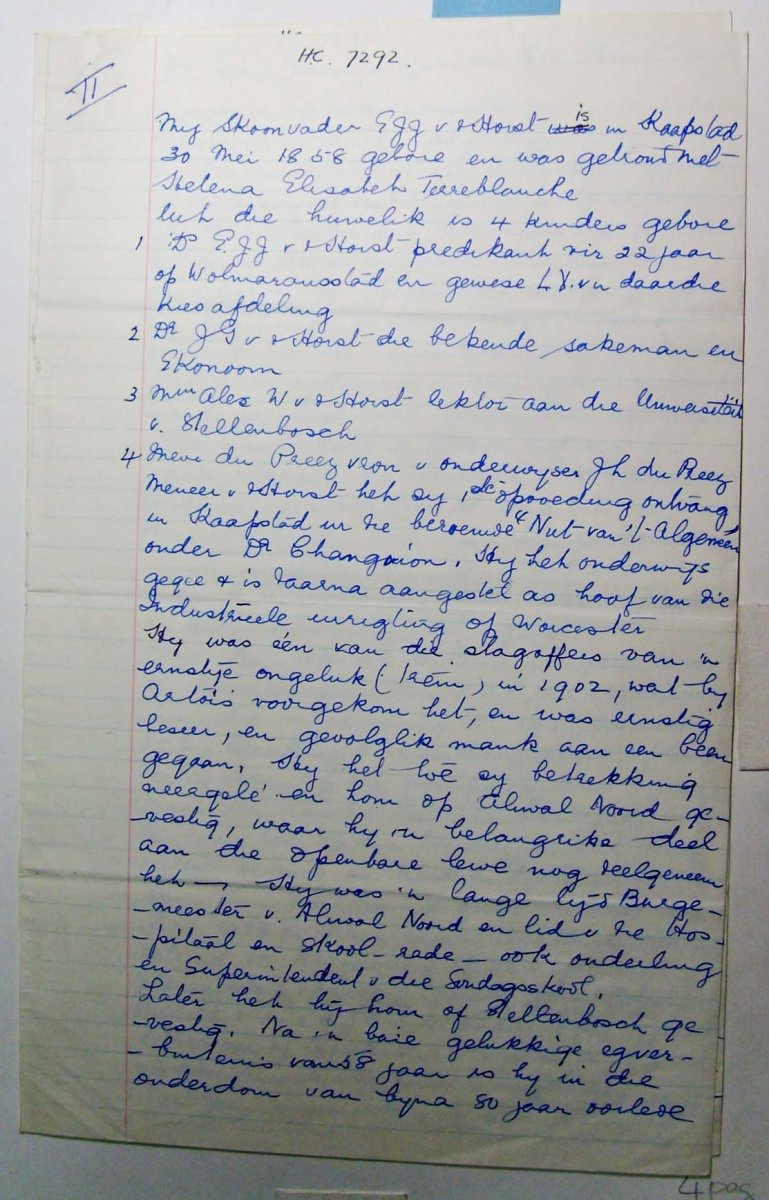 H.C. 7292.
II
My Skoonvader E J J v d Horst is in Kaapstad
30 Mei 1858 gebore en was getroud met
Helena Elisabeth Terreblanche
Uit die huwelik is 4 kinders gebore
1 Ds E J J v d Horst predikant vir 22 jaar
op Wolmaransstad en gewese L.V. v n daardie
Kiesafdeling
2 Dr J G v d Horst die bekende sakeman en
Ekonoom
3 Mnr Alex W v d Horst lektor aan die Universiteit
v. Stellenbosch
4 Mevr du Preez vrou v onderwyser J h du Preez
Meneer v d Horst het sy opvoeding ontvang
in Kaapstad in die beroemde "Nut van 't Algemeen
onder Dr Changuion. Hy het onderwys
gegee & is daarna aangestel as hoof van die
Industrieele inrigting op Worcester
Hy was één van die slagoffers van 'n
ernstige ongeluk (trein) in 1902, wat by
Artois voorgekom het, en was ernstig
beseer, en gevolglik mank aan een been
gegaan. Hy het toé sy betrekking
neergelê en hom op Aliwal Noord ge-
-vestig, waar hy 'n belangrike deel
aan die openbare lewe nog deelgeneem
het — Hy was 'n lange tyd Burge-
-meester v. Aliwal Noord en lid v die Hos-
-pitaal en Skool-rade — ook ouderling
en Superintendent v die Sondagsskool.
Later het hy hom op Stellenbosch ge
-vestig. Na 'n baie gelukkige egver-
-bintenis van 58 jaar is hy in die
ouderdom van byna 80 jaar oorlede